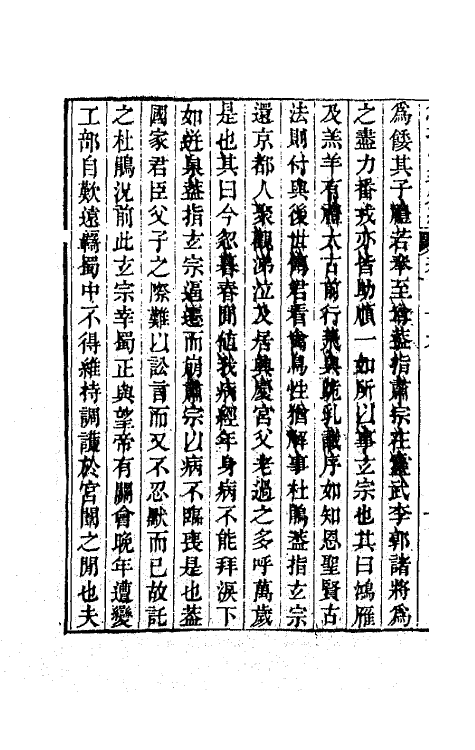 為餧其子禮若奉至尊蓋指肅宗在靈武李郭諸將為
之盡力番戎亦皆助順一如所以事玄宗也其曰鴻雁
及羔羊有禮太古前行飛與跪乳識序如知恩聖賢古
法則付與後世傳君看禽鳥性猶解事杜鵑蓋指玄宗
還京都人聚觀涕泣及居興慶宮父老過之多呼萬歲
是也其曰今忽暮春間値我病經年身病不能拜淚下
如迸泉蓋指玄宗逼遷而崩肅宗以病不臨喪是也蓋
國家君臣父子之際難以訟言而又不忍默而已故託
之杜鵑況前此玄宗幸蜀正與望帝有關會晚年遭變
工部自歎遠羇蜀中不得維持調護於宮闈之閒也夫